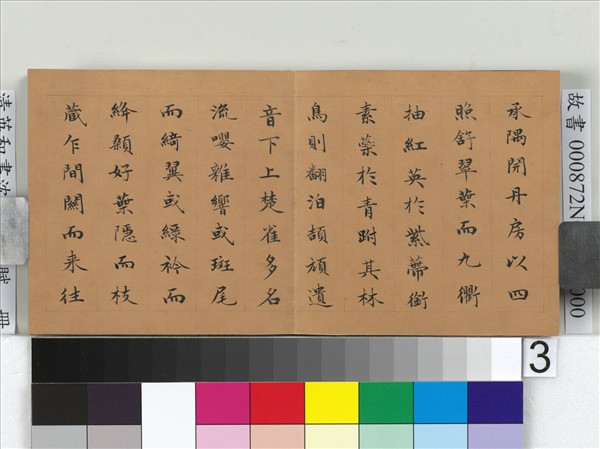 故書 000872N
000
承隅開丹房以四
照舒翠葉而九衢
抽紅英於紫蔕銜
素蘂於青跗其林
鳥則翻泊頡頏遺
音下上楚雀多名
流嚶雜響或斑尾
而綺翼或綠衿而
絳顙好葉隱而枝
藏乍間關而来往
清英和書沈
賦 冊
3